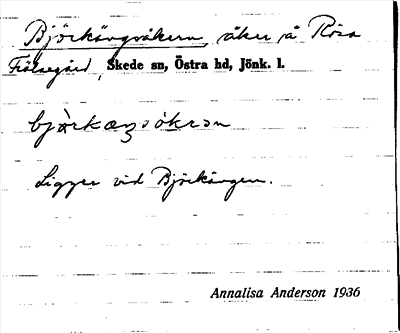 Björkängsåkern, åker å Rösa
Frälsegård, Skede sn, Östra hd, Jönk. l.
bjòrkæŋsókrən
Ligger vid Björkängen.
Annalisa Anderson 1936